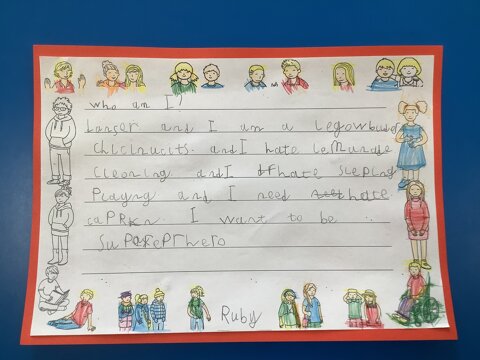 who am I?
Lanser and I am a legow builder
Chicinucits. and I hate lemunade
Cleoning and I hate Sleping
Playing and I need hate
caPRKn. I want to be
SuParePrhero
Ruby